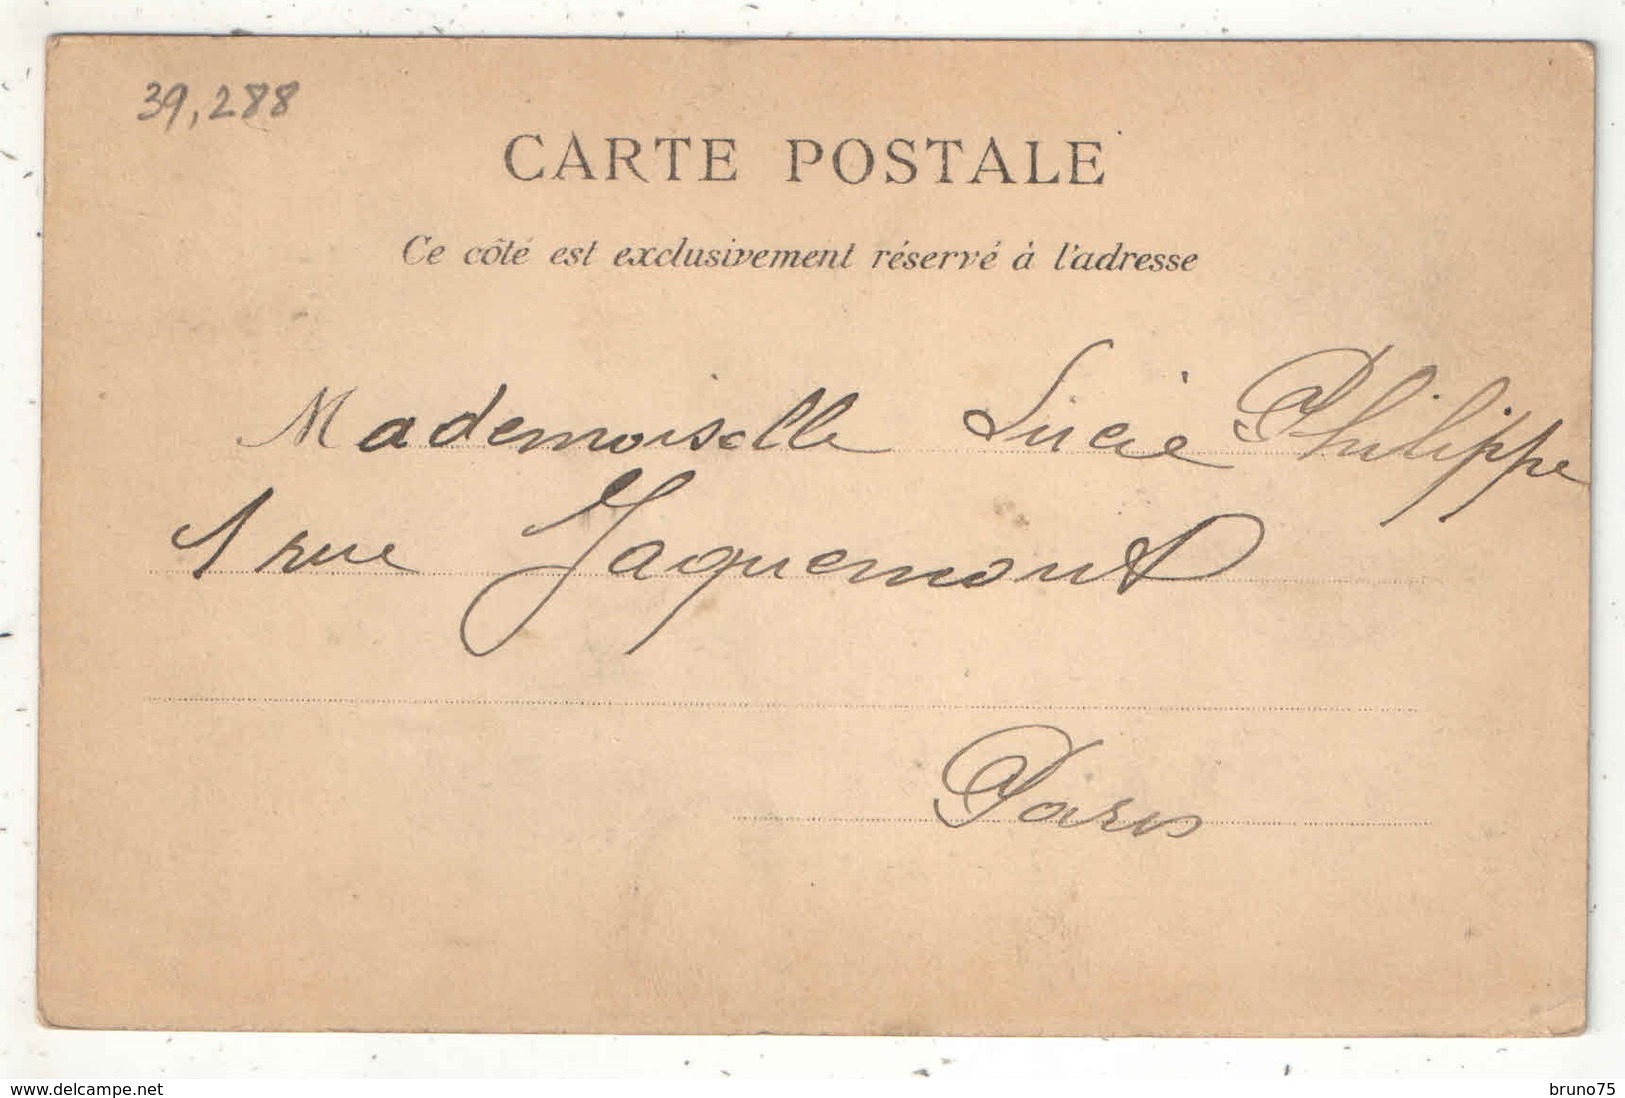 39,288
CARTE POSTALE
Ce côté est exclusivement réservé à l'adresse
Mademoiselle Lucie Philippe
1 rue Jaquemont
Paris
www.delcampe.net
bruno75